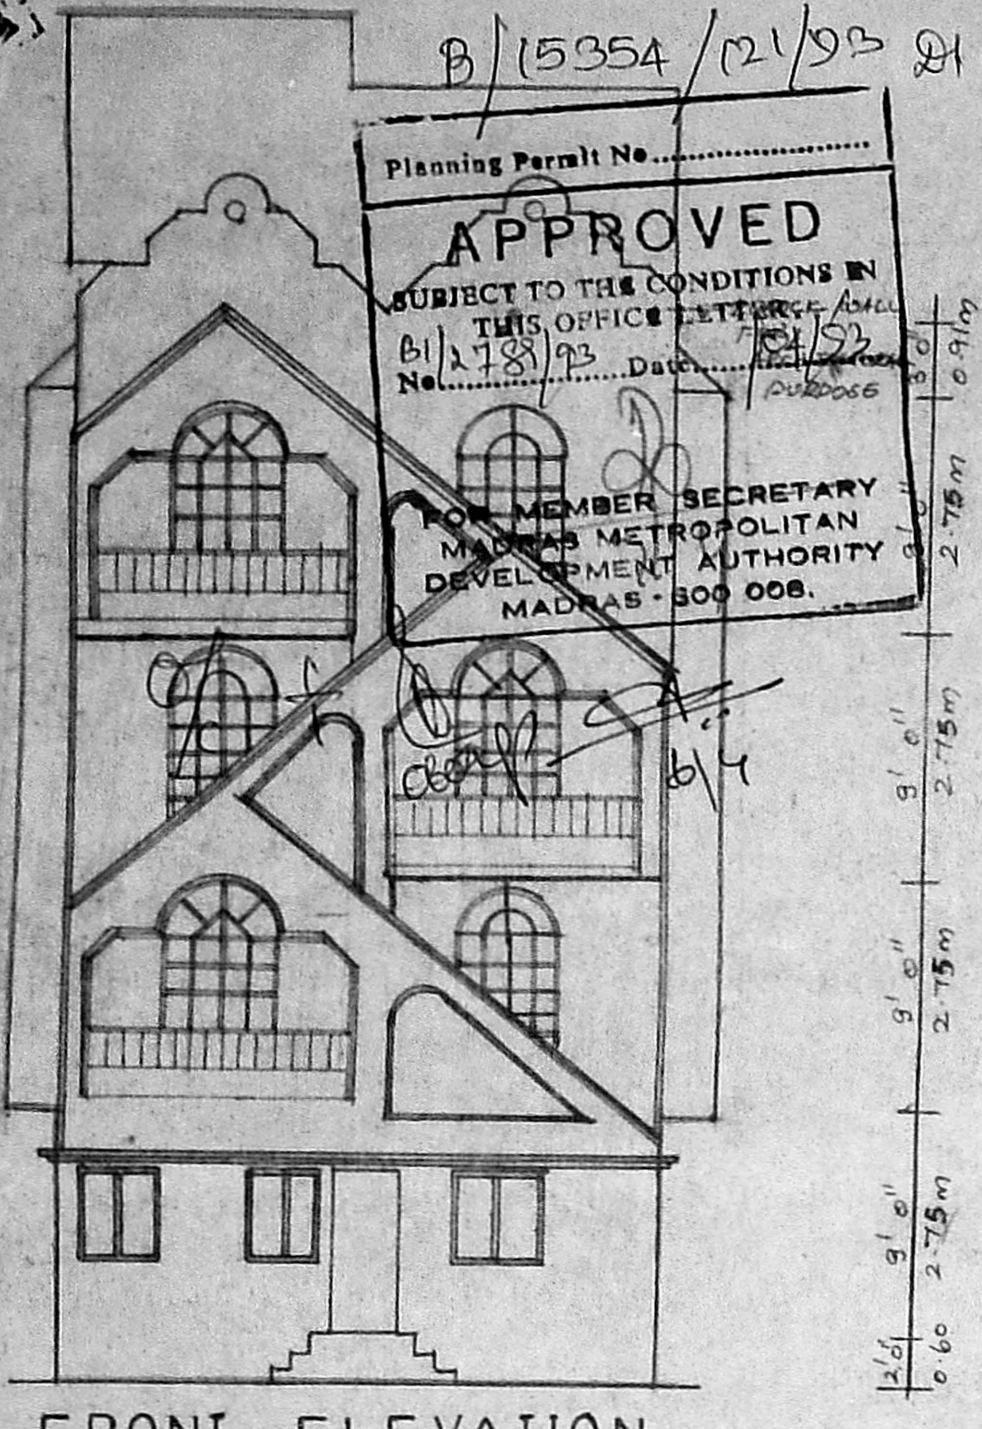 B/15354/121/93 D1
Planning Permit No
APPROVED
SUBJECT TO THE CONDITIONS IN
THIS OFFICE LETTER
WALL
B1/2788/93 /04/93
No Date
PURPOSE
FOR MEMBER SECRETARY
MADRAS METROPOLITAN
DEVELOPMENT AUTHORITY
MADRAS - 600 008.
6/4
3' 0"
0.91m
9' 0"
2.75m
9' 0"
2.75m
9' 0"
2.75m
9' 0"
2.75m
2' 0"
0.60
FRONT ELEVATION